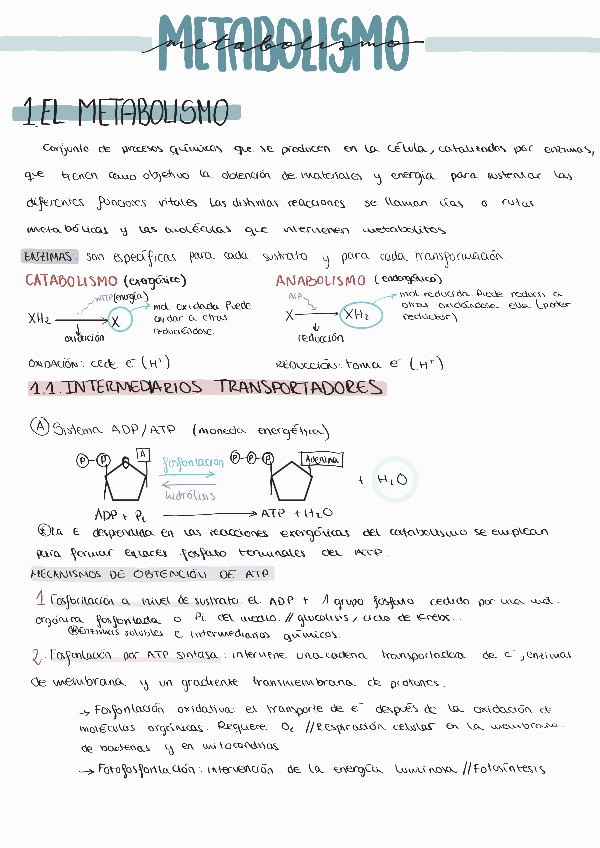 METABOLISMO
metabolismo
1. EL METABOLISMO
Conjunto de procesos químicos que se producen en la célula, catalizados por enzimas,
que tienen como objetivo la obtención de materiales y energía para sustentar las
diferentes funciones vitales. Las distintas reacciones se llaman vías o rutas
metabólicas y las moléculas que intervienen metabolitos.
ENZIMAS: son específicas para cada sustrato y para cada transformación.
CATABOLISMO (exergónico)
ATP (energía)
XH2 → X
oxidación
mol. oxidada. Puede
oxidar a otras
reduciéndose.
OXIDACIÓN: cede e- (H+)
ANABOLISMO (endergónico)
ATP
X → XH2
reducción
mol. reducida. Puede reducir a
otras oxidándose ella (poder
reductor)
REDUCCIÓN: toma e- (H+)
1.1. INTERMEDIARIOS TRANSPORTADORES
A Sistema ADP/ATP (moneda energética)
P P A
fosforilación
hidrólisis
P P P Adenina
+ H2O
ADP + Pi → ATP + H2O
La E desprendida en las reacciones exergónicas del catabolismo se emplean
para formar enlaces fosfato terminales del ATP.
MECANISMOS DE OBTENCIÓN DE ATP
1. Fosforilación a nivel de sustrato: el ADP + 1 grupo fosfato cedido por una mol.
orgánica fosforilada o Pi del medio. // glucolisis, ciclo de Krebs...
Enzimas solubles e intermediarios químicos.
2. Fosforilación por ATP sintasa: interviene una cadena transportadora de e-, enzimas
de membrana y un gradiente transmembrana de protones.
→ Fosforilación oxidativa: el transporte de e- después de la oxidación de
moléculas orgánicas. Requiere O2 // Respiración celular en la membrana
de bacterias y en mitocondrias
→ Fotofosforilación: intervención de la energía luminosa // Fotosíntesis